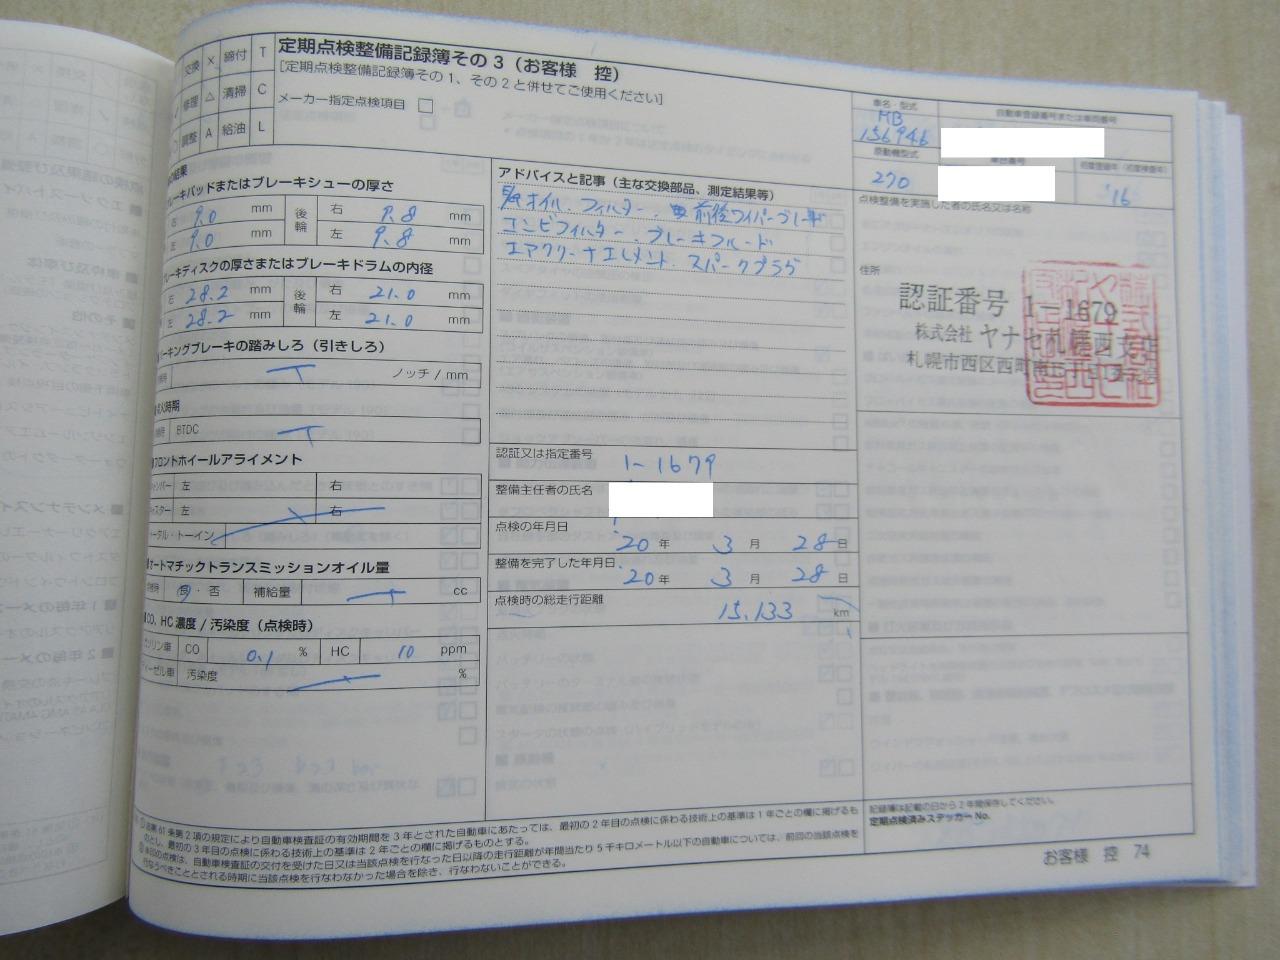 交換 × 締付 T
修理 △ 清掃 C
調整 A 給油 L
定期点検整備記録簿その3（お客様 控）
[定期点検整備記録簿その1、その2と併せてご使用ください]
メーカー指定点検項目
車名・型式
MB
156946
自動車登録番号または車両番号
原動機型式
270
車台番号
初度登録年（初度検査年）
'16
の結果
ブレーキパッドまたはブレーキシューの厚さ
右 9.0 mm 後輪 右 9.8 mm
左 9.0 mm 左 9.8 mm
ブレーキディスクの厚さまたはブレーキドラムの内径
右 28.2 mm 後輪 右 21.0 mm
左 28.2 mm 左 21.0 mm
パーキングブレーキの踏みしろ（引きしろ）
ノッチ / mm
点火時期
BTDC
フロントホイールアライメント
キャンバー 左 右
キャスター 左 右
トータル・トーイン
オートマチックトランスミッションオイル量
良・否 補給量 cc
CO、HC 濃度 / 汚染度（点検時）
ガソリン車 CO 0.1 % HC 10 ppm
ディーゼル車 汚染度 %
アドバイスと記事（主な交換部品、測定結果等）
E/gオイル、フィルター、前後ワイパーブレード
コンビフィルター、ブレーキフルード
エアクリーナエレメント、スパークプラグ
認証又は指定番号 1-1679
整備主任者の氏名
点検の年月日
20年 3月 28日
整備を完了した年月日
20年 3月 28日
点検時の総走行距離
15,133 km
点検整備を実施した者の氏名又は名称
住所
認証番号 1-1679
株式会社 ヤナセ札幌西支店
札幌市西区西町南
記録簿は記載の日から2年間保存してください。
定期点検済みステッカー No.
法第61条第2項の規定により自動車検査証の有効期間を3年とされた自動車にあたっては、最初の2年目の点検に係わる技術上の基準は1年ごとの欄に掲げるも
のとし、最初の3年目の点検に係わる技術上の基準は2年ごとの欄に掲げるものとする。
の点検は、自動車検査証の交付を受けた日又は当該点検を行なった日以降の走行距離が年間当たり5千キロメートル以下の自動車については、前回の当該点検を
行なうべきこととされる時期に当該点検を行なわなかった場合を除き、行なわないことができる。
お客様 控 74